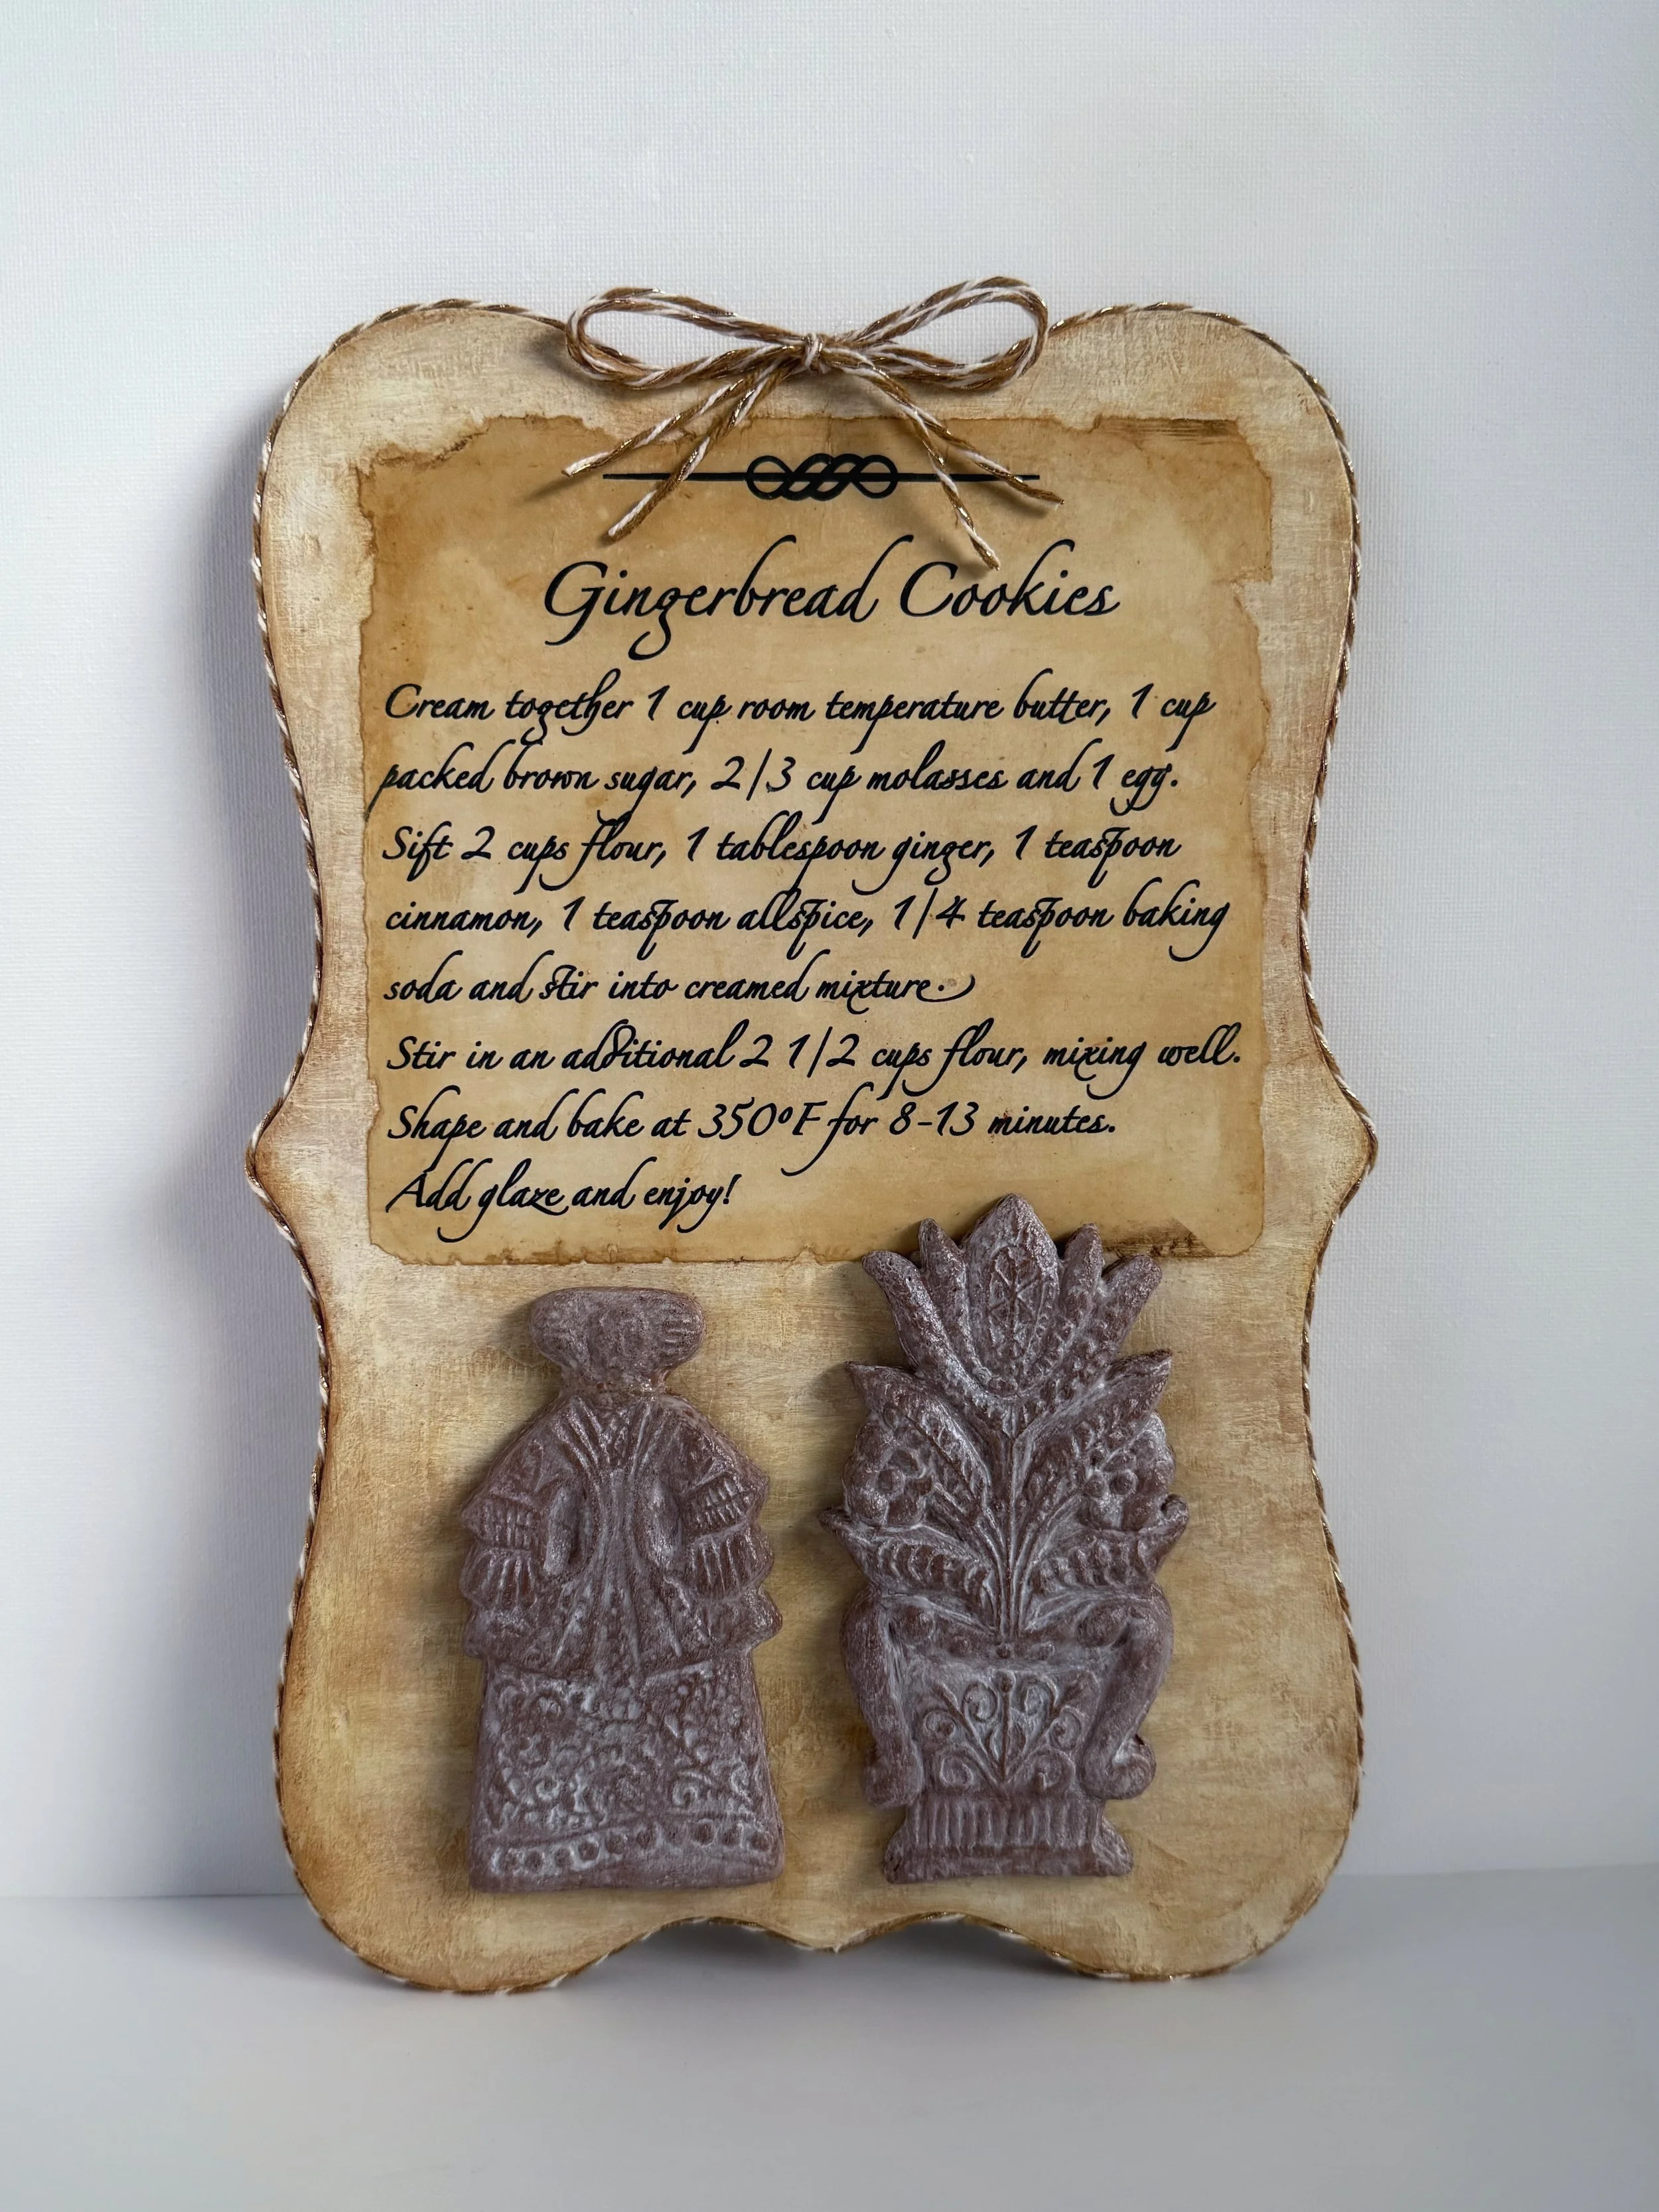 Gingerbread Cookies
Cream together 1 cup room temperature butter, 1 cup
packed brown sugar, 2/3 cup molasses and 1 egg.
Sift 2 cups flour, 1 tablespoon ginger, 1 teaspoon
cinnamon, 1 teaspoon allspice, 1/4 teaspoon baking
soda and stir into creamed mixture.
Stir in an additional 2 1/2 cups flour, mixing well.
Shape and bake at 350°F for 8-13 minutes.
Add glaze and enjoy!